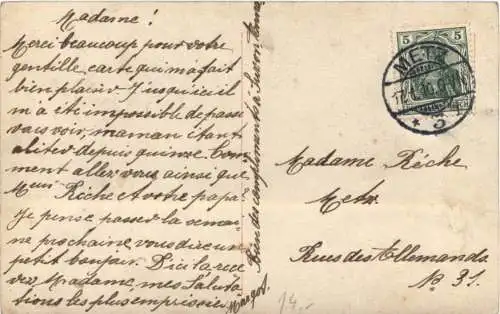 Madame!
Merci beaucoup pour votre
gentille carte qui m'a fait
bien plaisir. Jusqu'ici il
m'a été impossible de passer
vous voir, maman étant
alitée depuis quinze. Com
ment allez vous ainsi que
Monsr Rèche et votre papa?
Je pense passer la semai
ne prochaine vous dire un
petit bonjour. D'ici la rece
vez Madame, mes Saluta
tions les plus empressées
Margot.
Bien des compliments à Suzon
5 5
METZ
* 3
Madame Rèche
Metz.
Rue des Allemands
No 31.
14.-